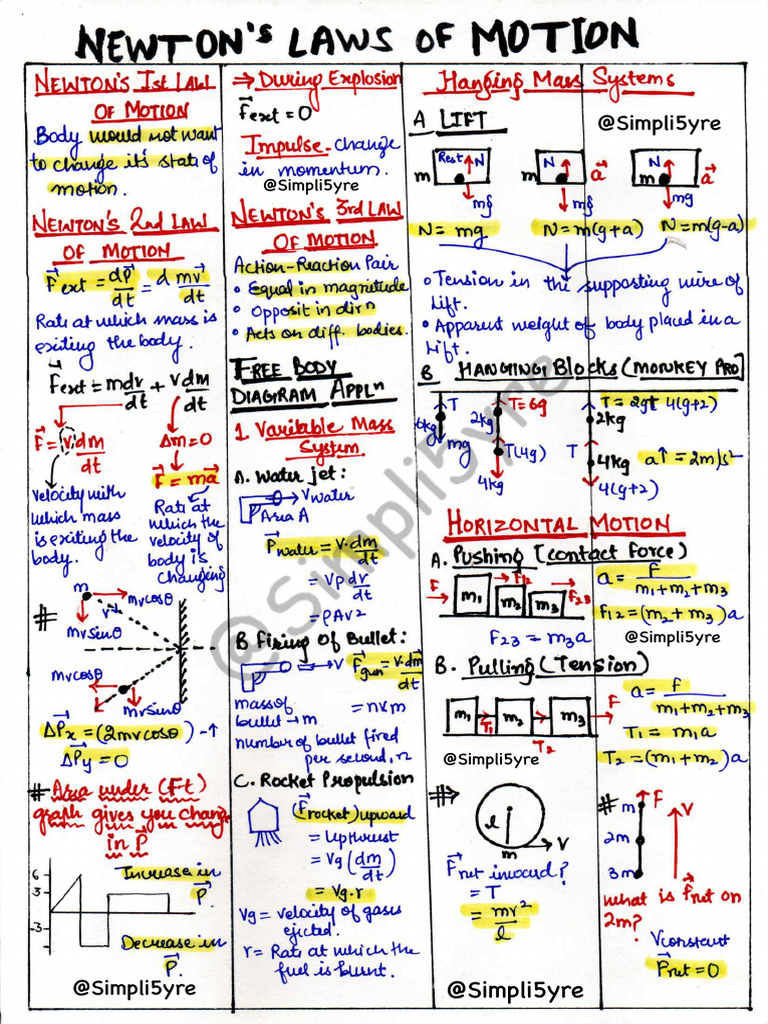 NEWTON'S LAWS OF MOTION
NEWTON'S Ist LAW
OF MOTION
Body would not want
to change it's state of
motion.
NEWTON'S 2nd LAW
OF MOTION
F⃗ext = dP⃗/dt = d mv⃗/dt
Rate at which mass is
exiting the body.
F⃗ext = mdv/dt + vdm/dt
F⃗ = vdm/dt
Δm=0
F⃗ = ma⃗
velocity with
which mass
is exiting the
body.
Rate at
which the
velocity of
body is
changing
#
m
mvcosθ
v
mvsinθ
mvcosθ
mvsinθ
ΔP⃗x = (2mvcosθ) -↑
ΔP⃗y = 0
# Area under (Ft)
graph gives you change
in P⃗
6
3
-3
Increase in
P⃗
Decrease in
P⃗.
@Simpli5yre
⇒ During Explosion
F⃗ext = 0
Impulse - change
in momentum.
@Simpli5yre
NEWTON'S 3rd LAW
OF MOTION
Action-Reaction Pair
• Equal in magnitude
• Opposit in dirⁿ
• Acts on diff. bodies.
FREE BODY
DIAGRAM APPLⁿ
1. Varitable Mass
System
A. Water jet:
v water
Area A
F⃗water = v.dm/dt
= vρ dv/dt
= ρAv²
B Firing Of Bullet:
v
F⃗gun = v.dm/dt
mass of
bullet → m
= nvm
number of bullet fired
per second, n
C. Rocket Propulsion
(F⃗rocket) upward
= Upthrust
= vg (dm/dt)
= vg.r
vg = velocity of gases
ejected.
r = Rate at which the
fuel is burnt.
Hanging Mass Systems
A LIFT
@Simpli5yre
Rest N
m
mg
N = mg
N
m
a⃗
mg
N = m(g+a)
N
m
a⃗
mg
N = m(g-a)
• Tension in the supporting wire of
lift.
• Apparent weight of body placed in a
lift.
B HANGING Blocks (MONKEY PRO]
T
6kg
mg
T=6g
2kg
T(4g)
4kg
T = 2g+ 4(g+2)
2kg
T
4kg
4(g+2)
a↑ = 2m/s²
HORIZONTAL MOTION
A. Pushing [contact force)
F
m1
F12
m2
m3
F23
a = F/m1+m2+m3
F12 = (m2+m3)a
F23 = m3a
@Simpli5yre
B. Pulling (Tension)
m1
T1
m2
T2
m3
F
a = F/m1+m2+m3
T1 = m1a
T2 = (m1+m2)a
@Simpli5yre
#
l
m
v
F⃗net inward?
= T
= mv²/l
@Simpli5yre
#
m
F
v
2m
3m
what is F⃗net on
2m?
Vconstant
F⃗net = 0
@Simpli5yre